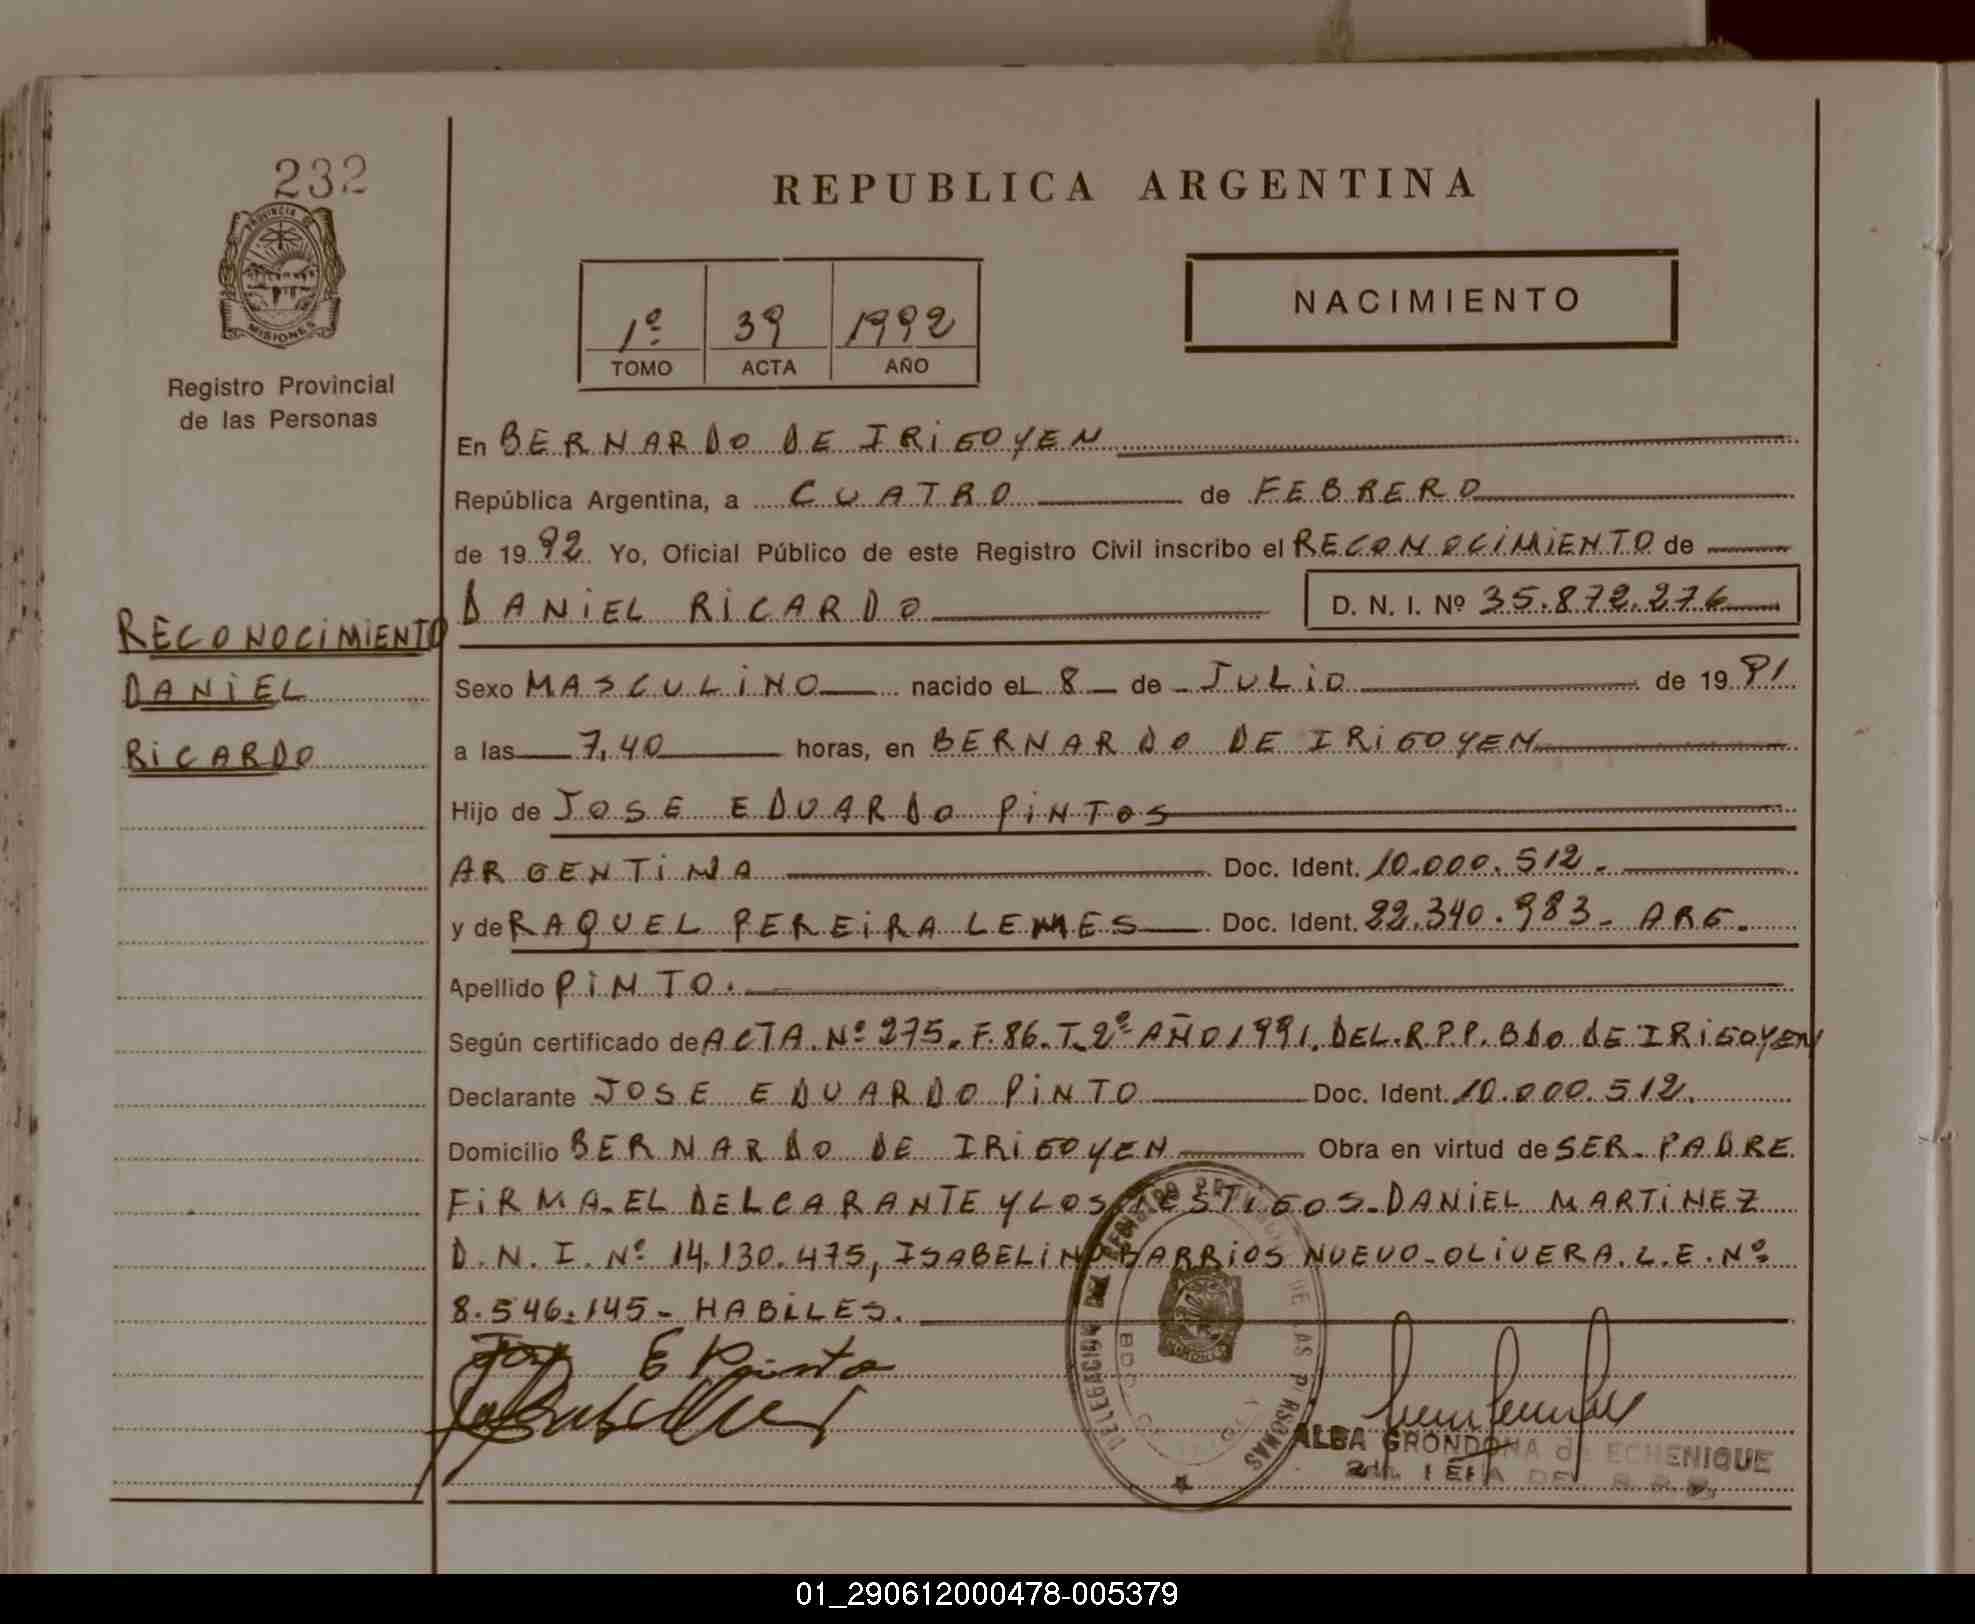 232
PROVINCIA DE
MISIONES
Registro Provincial
de las Personas
REPUBLICA ARGENTINA
1º 39 1992
TOMO ACTA AÑO
NACIMIENTO
En BERNARDO DE IRIGOYEN
República Argentina, a CUATRO de FEBRERO
de 19 92 Yo, Oficial Público de este Registro Civil inscribo el RECONOCIMIENTO de
DANIEL RICARDO D. N. I. Nº 35.872.276
RECONOCIMIENTO
DANIEL
RICARDO
Sexo MASCULINO nacido el 8 de JULIO de 19 91
a las 7,40 horas, en BERNARDO DE IRIGOYEN
Hijo de JOSE EDUARDO PINTOS
ARGENTINA Doc. Ident. 10.000.512.
y de RAQUEL PEREIRA LEMES Doc. Ident. 22.340.983- ARG.
Apellido PINTO.
Según certificado de ACTA.Nº 275. F.86.T.2º AÑO 1991. DEL.R.P.P. BDO DE IRIGOYEN
Declarante JOSE EDUARDO PINTO Doc. Ident. 10.000.512.
Domicilio BERNARDO DE IRIGOYEN Obra en virtud de SER PADRE.
FIRMA EL DELCARANTE Y LOS TESTIGOS-DANIEL MARTINEZ
D.N.I. Nº 14.130.475, ISABELINO BARRIOS NUEVO-OLIVERA. L.E. Nº
8.546.145- HABILES.
E Pinto
DELEGACION DEL REGISTRO DE LAS PERSONAS
BDO
ALBA GRONDONA de ECHENIQUE
JEFA DEL
01_290612000478-005379